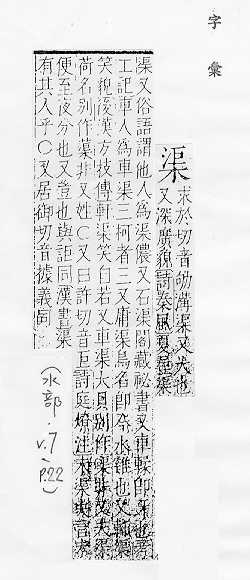 字彙
渠
求於切音劬溝渠又大也
又深廣貌詩秦風夏屋渠
渠又俗語謂他人爲渠儂又石渠閣藏祕書又車輮卽車也又軻渠
工記車人爲車渠三柯者三又庸渠鳥名卽水雞也又軒渠
笑貌後漢方技傳軒渠笑自若又車渠大貝別作硨磲又芙渠
荷名別作蕖非又姓○又臼許切音巨詩庭燎注夜未渠央言未
便至夜分也又豈也與詎同漢書渠
有其人乎○又居御切音據義同
(水部.
v.7,
p.22)